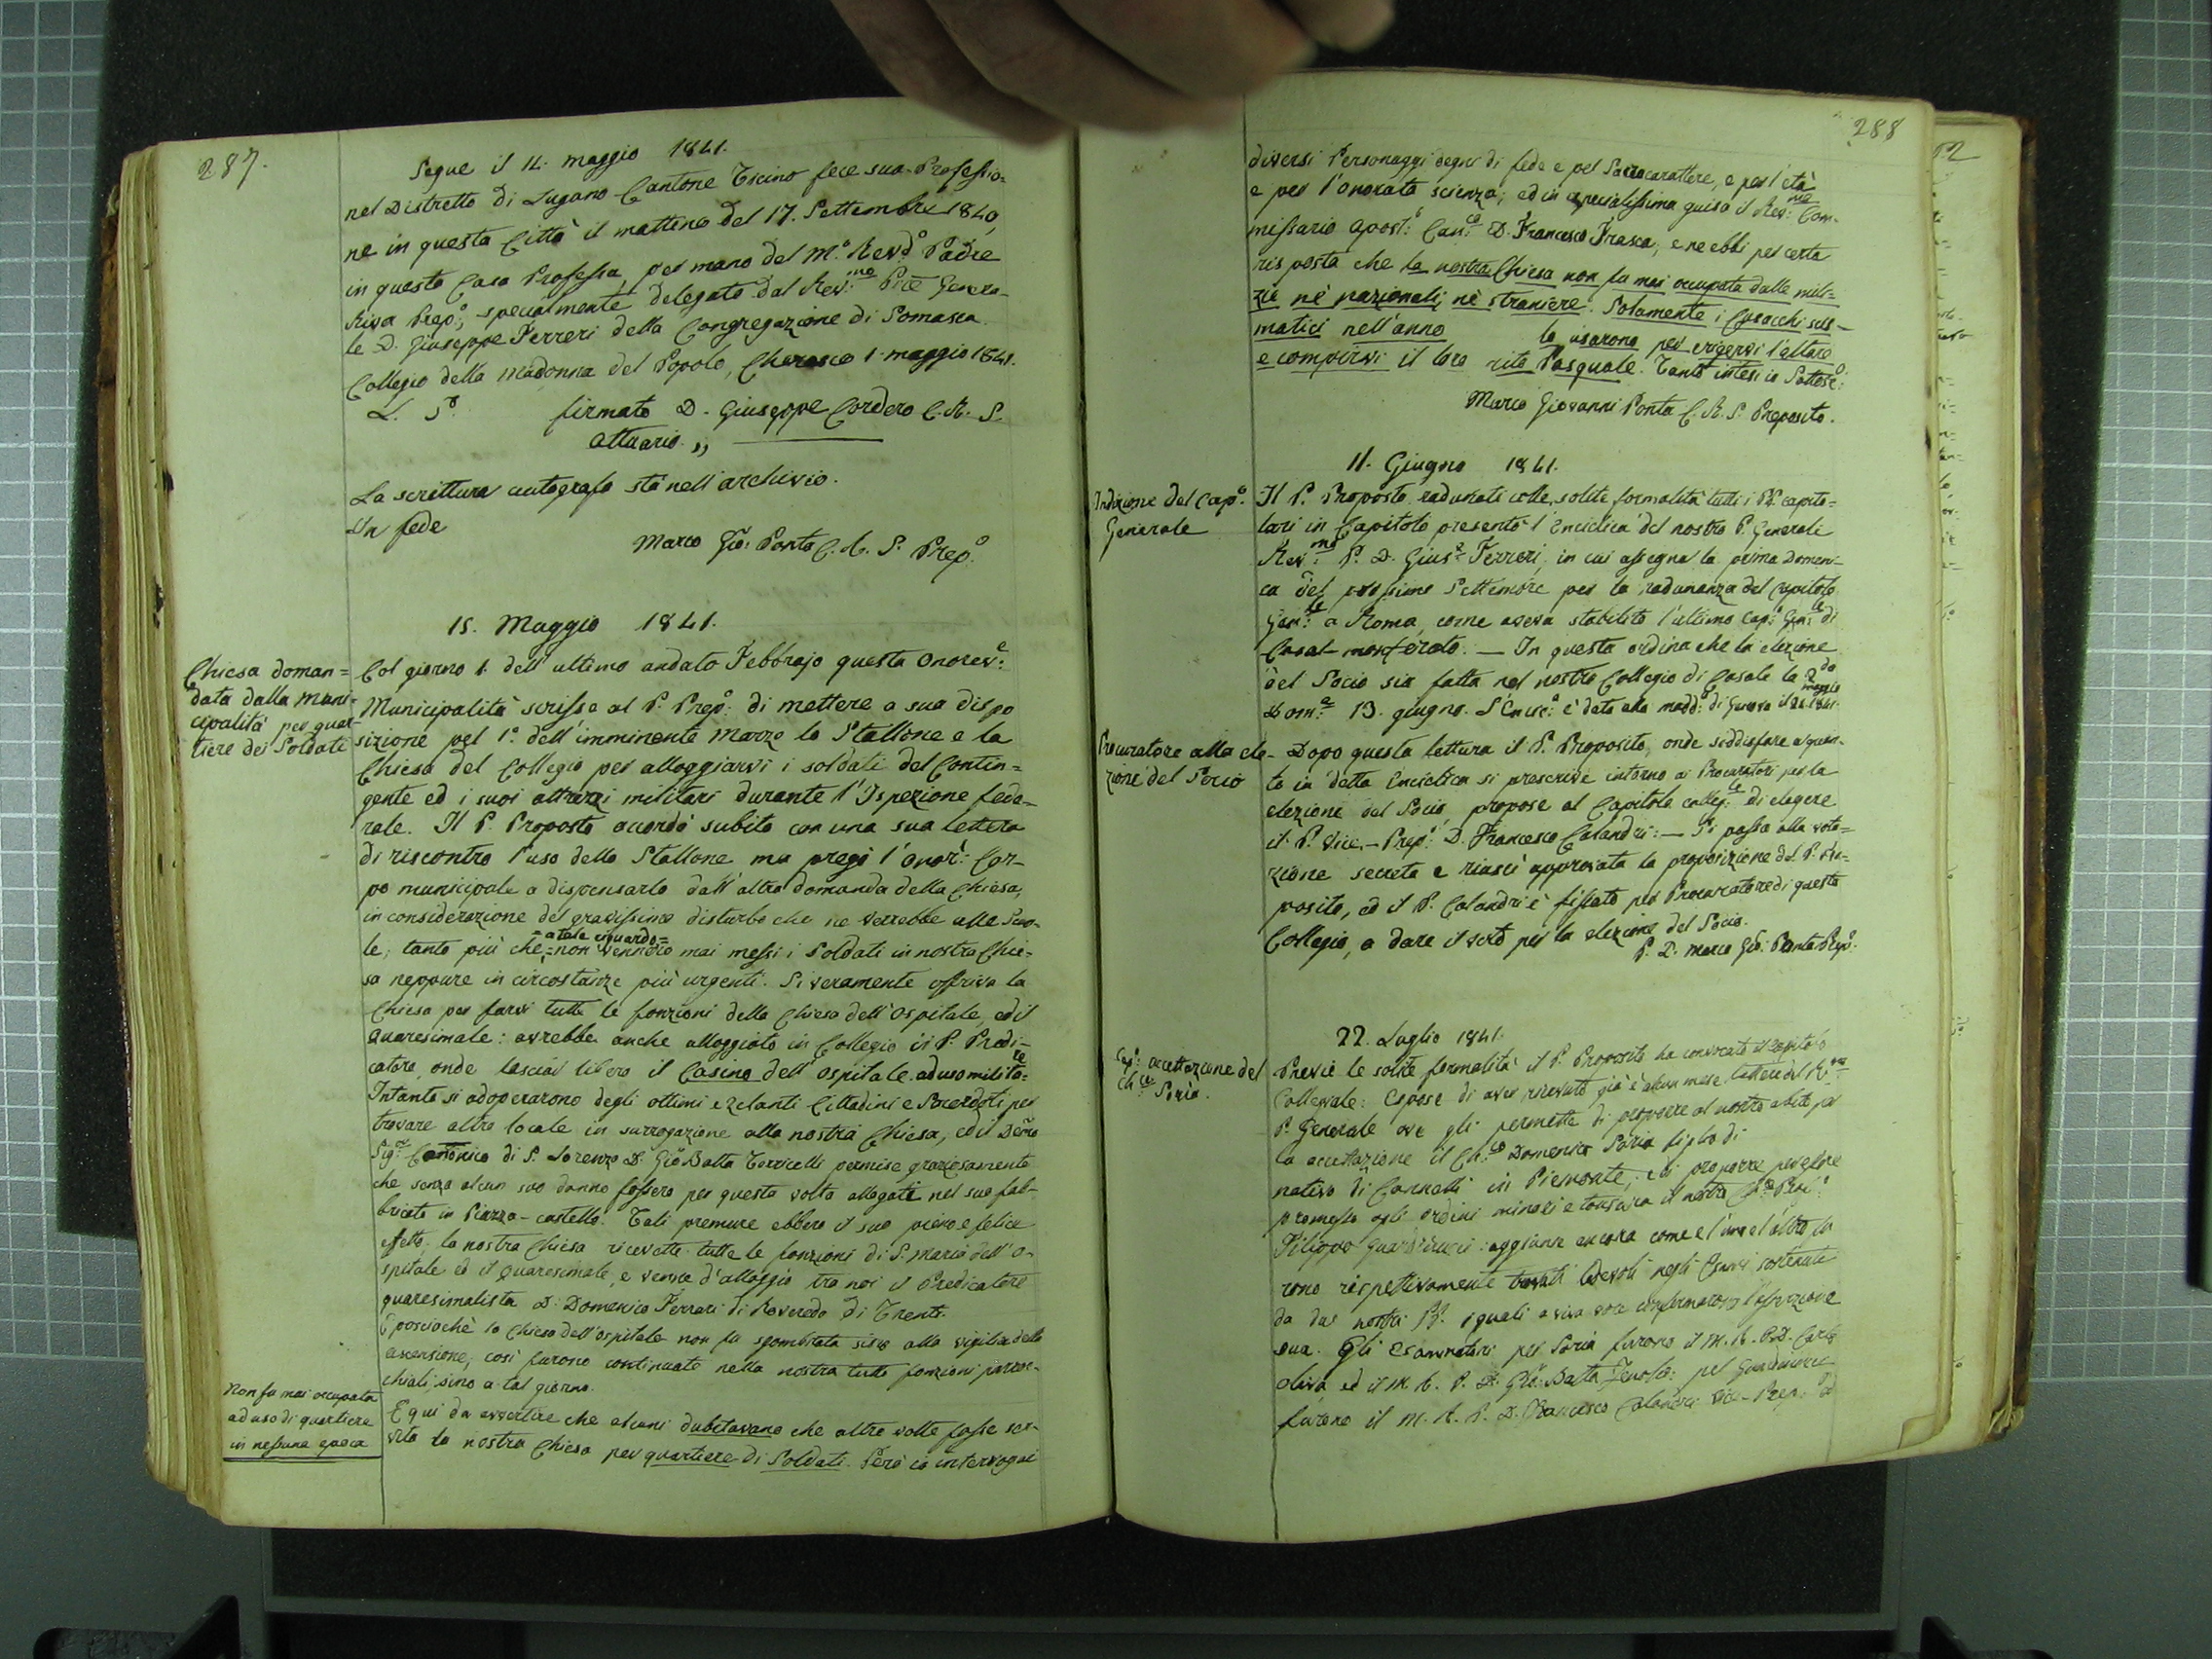 287.
Segue il 14. maggio 1841.
nel Distretto di Lugano Cantone Ticino fece sua Professio=
ne in questa Città il mattino del 17. Settembre 1840,
in questa Casa Professa, per mano del M.° Rev.d° Padre
Riva Prep.°, specialmente delegato dal Rev.mo Pre Genera-
le D. Giuseppe Ferreri della Congregazione di Somasca.
Collegio della Madonna del Popolo, Cherasco 1. maggio 1841.
L. S. firmato D. Giuseppe Cordero C. R. S.
attuario. „
La scrittura autografa stà nell'archivio.
In fede
Marco Gio: Ponta C. R. S. Prep.°
15. Maggio 1841.
Chiesa doman=
data dalla Muni
cipalità per quar
tiere dei Soldati
Col giorno 1. dell'ultimo andato Febbrajo questa Onorev.e
Municipalità scrisse al P. Prep.° di mettere a sua dispo
sizione pel 1.° dell'imminente Marzo lo Stallone e la
Chiesa del Collegio per alloggiarvi i soldati del Contin=
gente ed i suoi attrezzi militari durante l'Ispezione fede-
rale. Il P. Proposto accordò subito con una sua lettera
di riscontro l'uso dello Stallone ma pregò l'onor.e Cor-
po municipale a dispensarlo dall'altra domanda della Chiesa,
in considerazione del gravissimo disturbo che ne verrebbe alle Scuo-
le; tanto più che =a tale riguardo= non vennero mai messi i Soldati in nostra Chie-
sa neppure in circostanze più urgenti. Si veramente offriva la
Chiesa per farvi tutte le fonzioni della Chiesa dell'Ospitale, ed il
Quaresimale: avrebbe anche alloggiato in Collegio il P. Predi-
catore, onde lasciar libero il Casino dell'ospitale ad uso milita=re
Intanto si adoperarono degli ottimi e zelanti Cittadini e Sacerdoti per
trovare altro locale in surrogazione alla nostra Chiesa, ed il
Sig.r Canonico di S. Lorenzo D. Gio Batta Torricelli permise graziosamente
che senza alcun suo danno fossero per questa volta allogati nel suo fab-
bricato in Piazza-castello. Tali premure ebbero il suo pieno e felice
effetto; la nostra Chiesa ricevette tutte le fonzioni di S. Maria dell'O-
spitale ed il Quaresimale, e venne d'alloggio tra noi il Predicatore
quaresimalista D. Domenico Ferrari di Roveredo di Trento.
E posciochè la Chiesa dell'ospitale non fu sgombrata sino alla vigilia della
ascensione, così furono continuate nella nostra tutte fonzioni parroc-
chiali sino a tal giorno.
Non fu mai occupata
ad uso di quartiere
in nessuna epoca
E qui da avvertire che alcuni dubitavano che altre volte fosse ser-
vita la nostra Chiesa per quartiere di Soldati. Però io interrogai
288
diversi Personaggi degni di fede e pel Sacro carattere, e per l'età
e per l'onorata scienza; ed in specialissima guisa il Rev.mo Com-
missario apost.° Can.co D. Francesco Frasca; e ne ebbi per certa
risposta che la nostra Chiesa non fu mai occupata dalle mili=
zie nè nazionali, nè straniere. Solamente i Cosacchi scis-
matici nell'anno lo usarono per ergervi l'altare
e compirvi il loro rito Pasquale. Tanto intesi io Sottosc.°
Marco Giovanni Ponta C. R. S. Preposito.
11. Giugno 1841.
Indizione del Cap.°
Generale
Il P. Proposto radunati colle solite formalità tutti i PP. capito=
lari in Capitolo presentò l'Enciclica del nostro P. Generale
Rev.mo P. D. Gius.e Ferreri, in cui assegna la prima Domeni-
ca del prossimo Settembre per la radunanza del Capitolo
Gen.le a Roma, come aveva stabilito l'ultimo Cap.° Gen.le di
Casal-monferrato. — In questa ordina che la elezione
del Socio sia fatta nel nostro Collegio di Casale la 2.da
Dom.ca 13. giugno. L'Encic.a è data alla Madd.a di Genova il 21. maggio 1841.
Procuratore alla ele-
zione del Socio
Dopo questa lettura il P. Proposito, onde soddisfare a quan-
to in detta Enciclica si prescrive intorno ai Procuratori per la
elezione del Socio, propose al Capitolo colleg.le di elegere
il P. Vice-Prep.° D. Francesco Calandri: — Si passa alla vota=
zione secreta e riuscì approvata la proposizione del P. Pre=
posito, ed il P. Calandri è fissato per Procuratore di questo
Collegio, a dare il voto per la elezione del Socio.
P. D. Marco Gio. Ponta Prep.°
22. Luglio 1841.
Cap.° accettazione del
Ch.co Soria.
Previe le solite formalità il P. Proposito ha convocato il Capitolo
Collegiale: Espose di aver ricevuto già è alcun mese lettere del R.mo
P. Generale ove gli permette di proporre al nostro abito per
la accettazione il Ch.co Domenico Soria figlio di
nativo di Cannelli in Piemonte, e di proporre per essere
promesso agli ordini minori e tonsura il nostro
Filippo Guarduncci: aggiunse ancora come e l'uno e l'altro fu
rono rispettivamente trovati lodevoli negli Esami sostenuti
da due nostri PP. i quali a viva voce confermarono l'asserzione
sua. Gli Esaminatori per Soria furono il M. R. P. D. Carlo
oliva ed il M. R. P. D. Gio: Batta; pel
furono il M. R. P. D. Francesco Calandri Vice-Prep.°